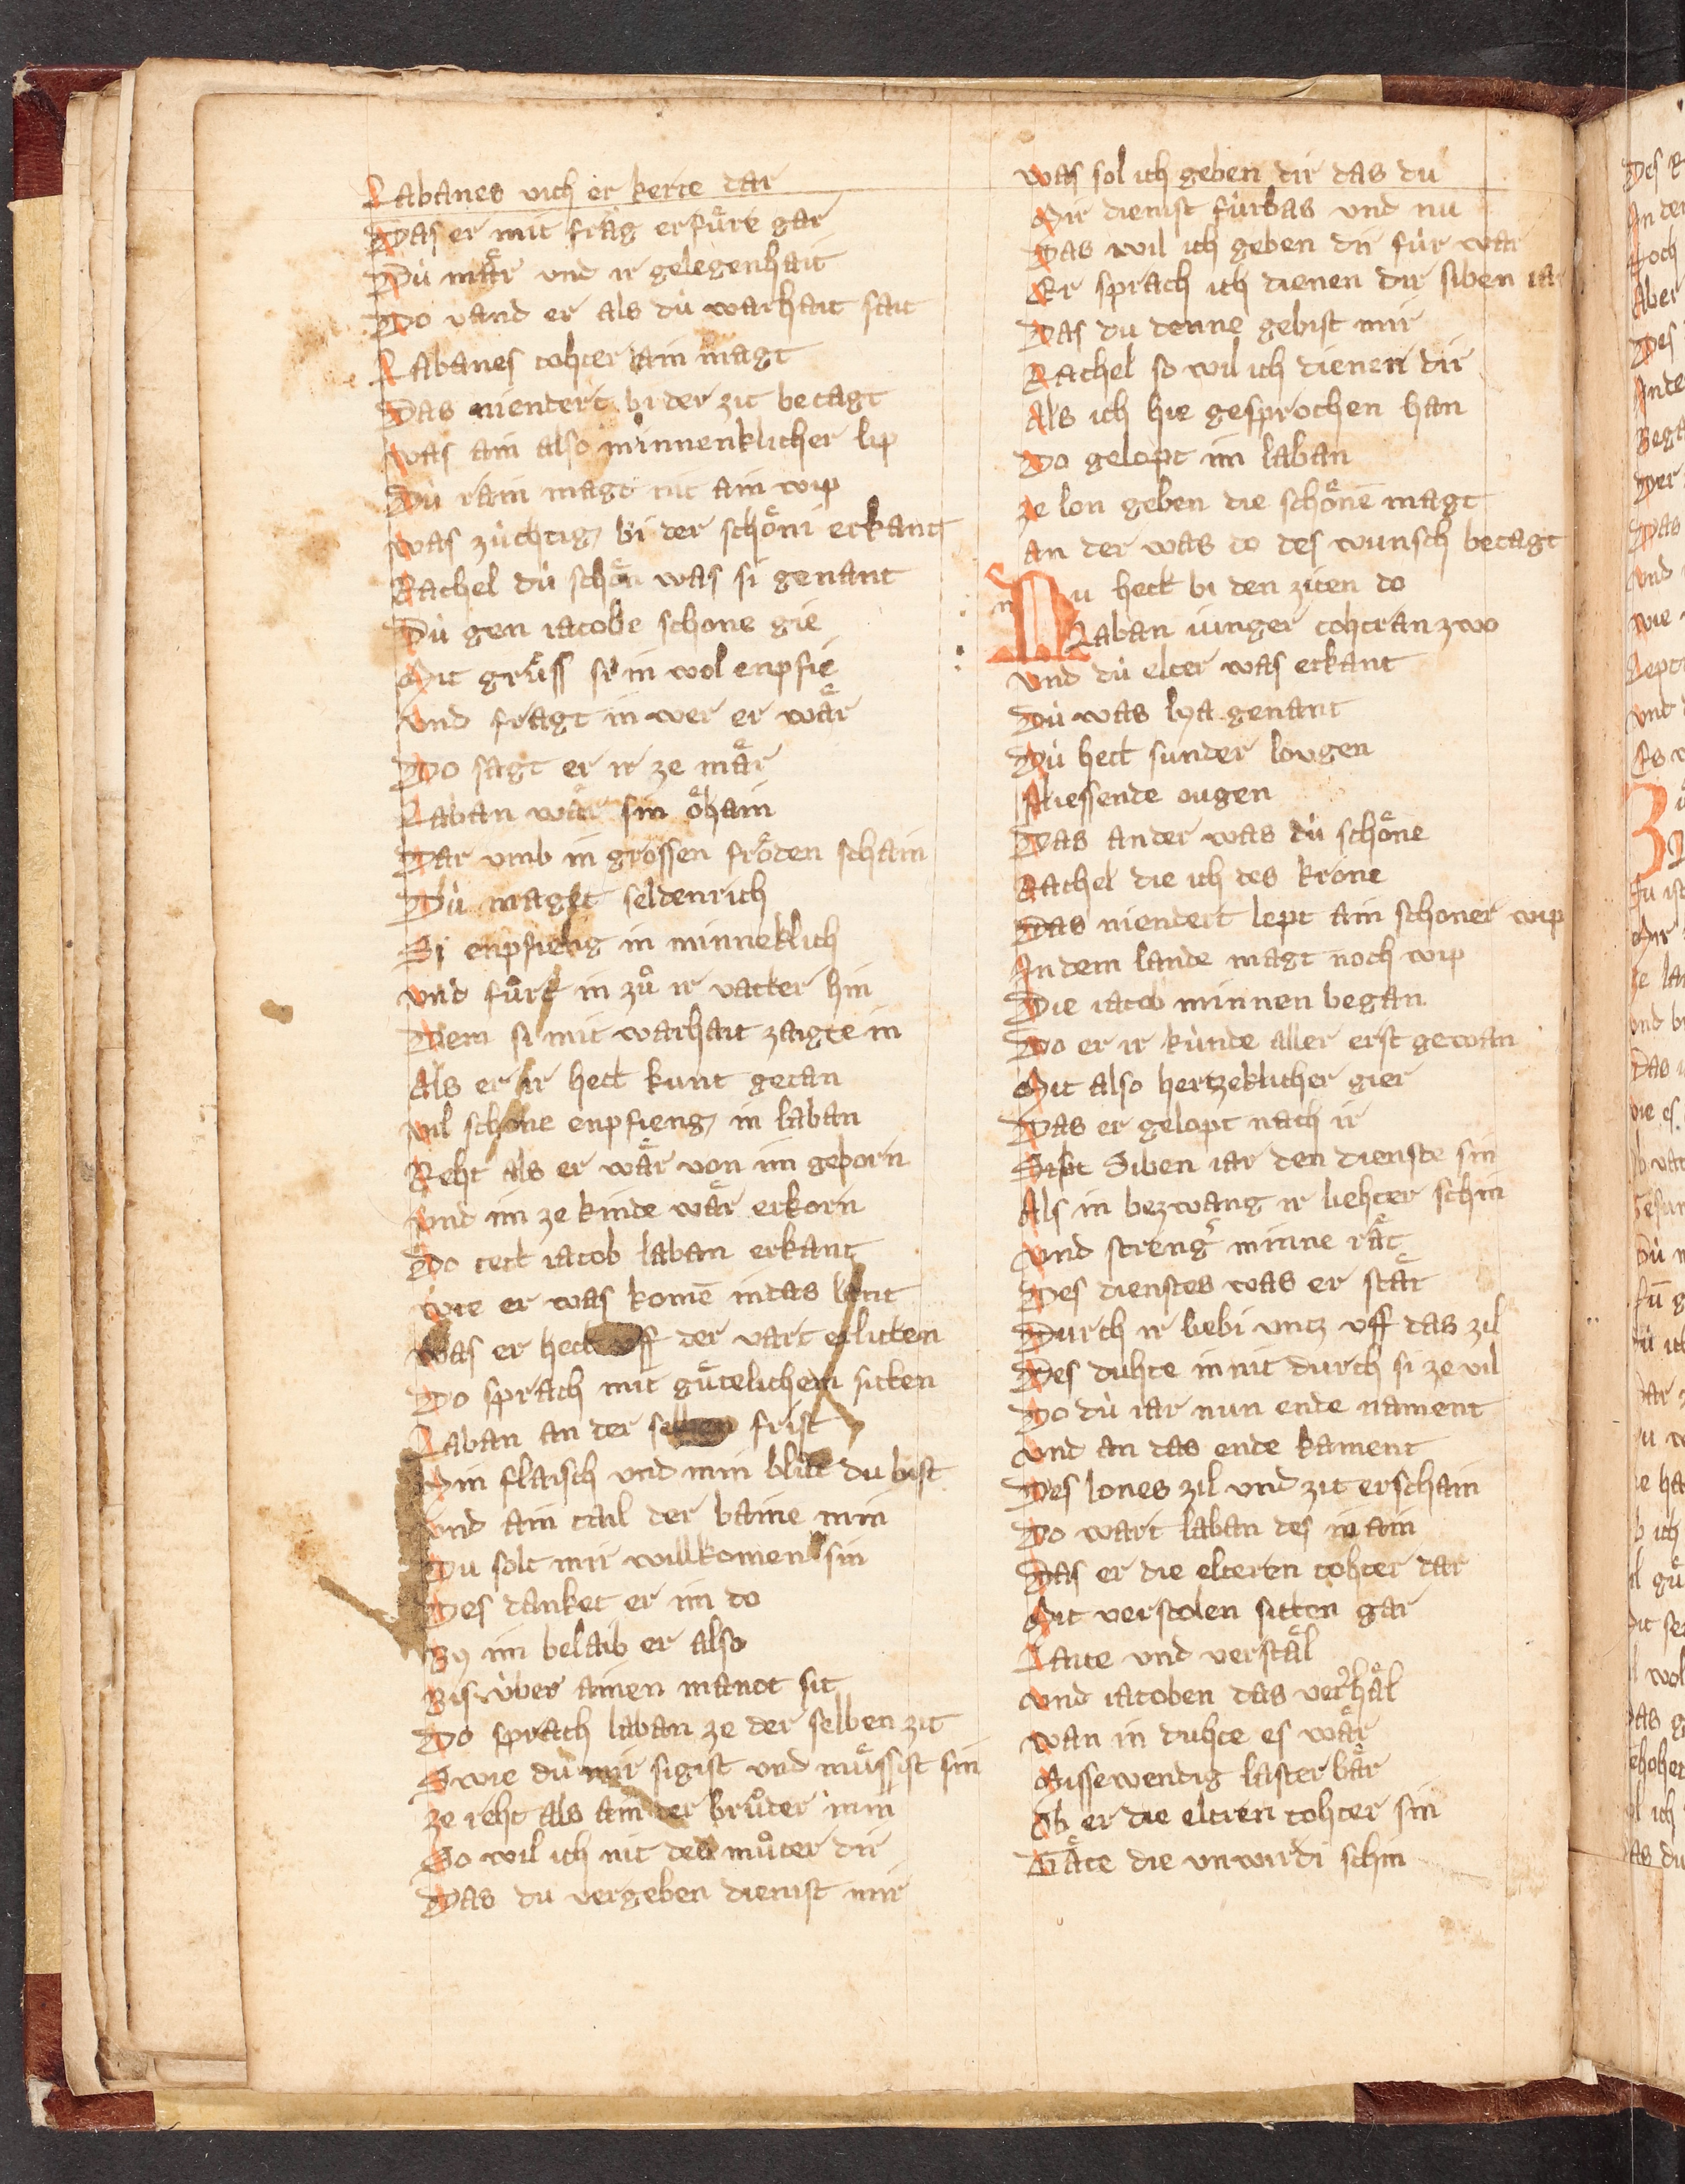 Labanes vich er kerte dar
Das er mit frag erfuͤre gar
Dù maͤr vnd ir gelegenhait
Do vand er als dù warhait sait
Labanes tohter ain magt
Das niendert bi der zit betagt
was ain also minnenklicher lip
Dù rain magt nit ain wip
was zùchtig bi der schoͤni erkant
Rachel dù schoͤn was si genant
Dù gen iacobe schone gie
Mit gruͤss si in wol enpfie
vnd fragt in wer er waͤr
Do sagt er ir ze maͤr
Laban waͤr sin oͤhain
Dar vmb in grossen froͤden schain
Dù magt seldenrich
Si enpfieng in minneklich
vnd fuͦrt in zuͦ ir vatter hin
Dem si mit warhait zaigte in
Als er ir hett kunt getan
vil schone enpfieng in laban
Reht als er waͤr von im geborn
vnd im ze kinde waͤr erkorn
Do tett iacob laban erkant
wie er was komē in das lant
was er hett vff der vart erlitten
Do sprach mit guͤtelichem sitten
Laban an der selben frist
Min flaisch vnd min bluͦt du bist
vnd ain tail der baine min
Du solt mir willkomen sin
Des danket er im do
By im belaib er also
Bis ùber ainen manot sit
Do sprach laban ze der selben zit
Swie du mir sigist vnd muͤssist sin
ze reht als ain der bruͦder min
So wil ich nit des muͦter dir
Das du vergeben dienist mir
was sol ich geben dir das du
Mir dienist fùrbas vnd nu
Das wil ich geben dir fùr war
Er sprach ich dienen dir siben iar
Das du denne gebist mir
Rachel so wil ich dienen dir
Als ich hie gesprochen han
Do gelopt im laban
ze lon geben die schoͤnē magt
an der was do des wunsch betagt
Nu hett bi den ziten do
Laban iunger tohtran zwo
vnd dù elter was erkant
Dù was lya genant
Dù hett sunder lougen
fliessende ougen
Das ander was dù schoͤne
Rachel die ich des krone
Das niendert lept ain schoner wip
In dem lande magt noch wip
Die iacob minnen began
Do er ir kùnde aller erst gewan
Mit also hertzeklicher gier
Das er gelopt nach ir
Siben iar den dienste sin
Als in bezwang ir liehter schin
vnd strenger minne raͤt
Des dienstes was er staͤt
Durch ir liebi vntz vff das zil
Des duhte in nit durch si ze vil
Do dù iar nun ende nament
vnd an das ende kament
Des lones zil vnd zit erschain
Do wart laban des in ain
Das er die elteren tohter dar
Mit verstolen sitten gar
Laite vnd verstaͤl
vnd iacoben das verhaͤl
wan in duhte es waͤr
Missewendig lasterbaͤr
Ob er die eltren tohter sin
Taͤte die vnwirdi schin